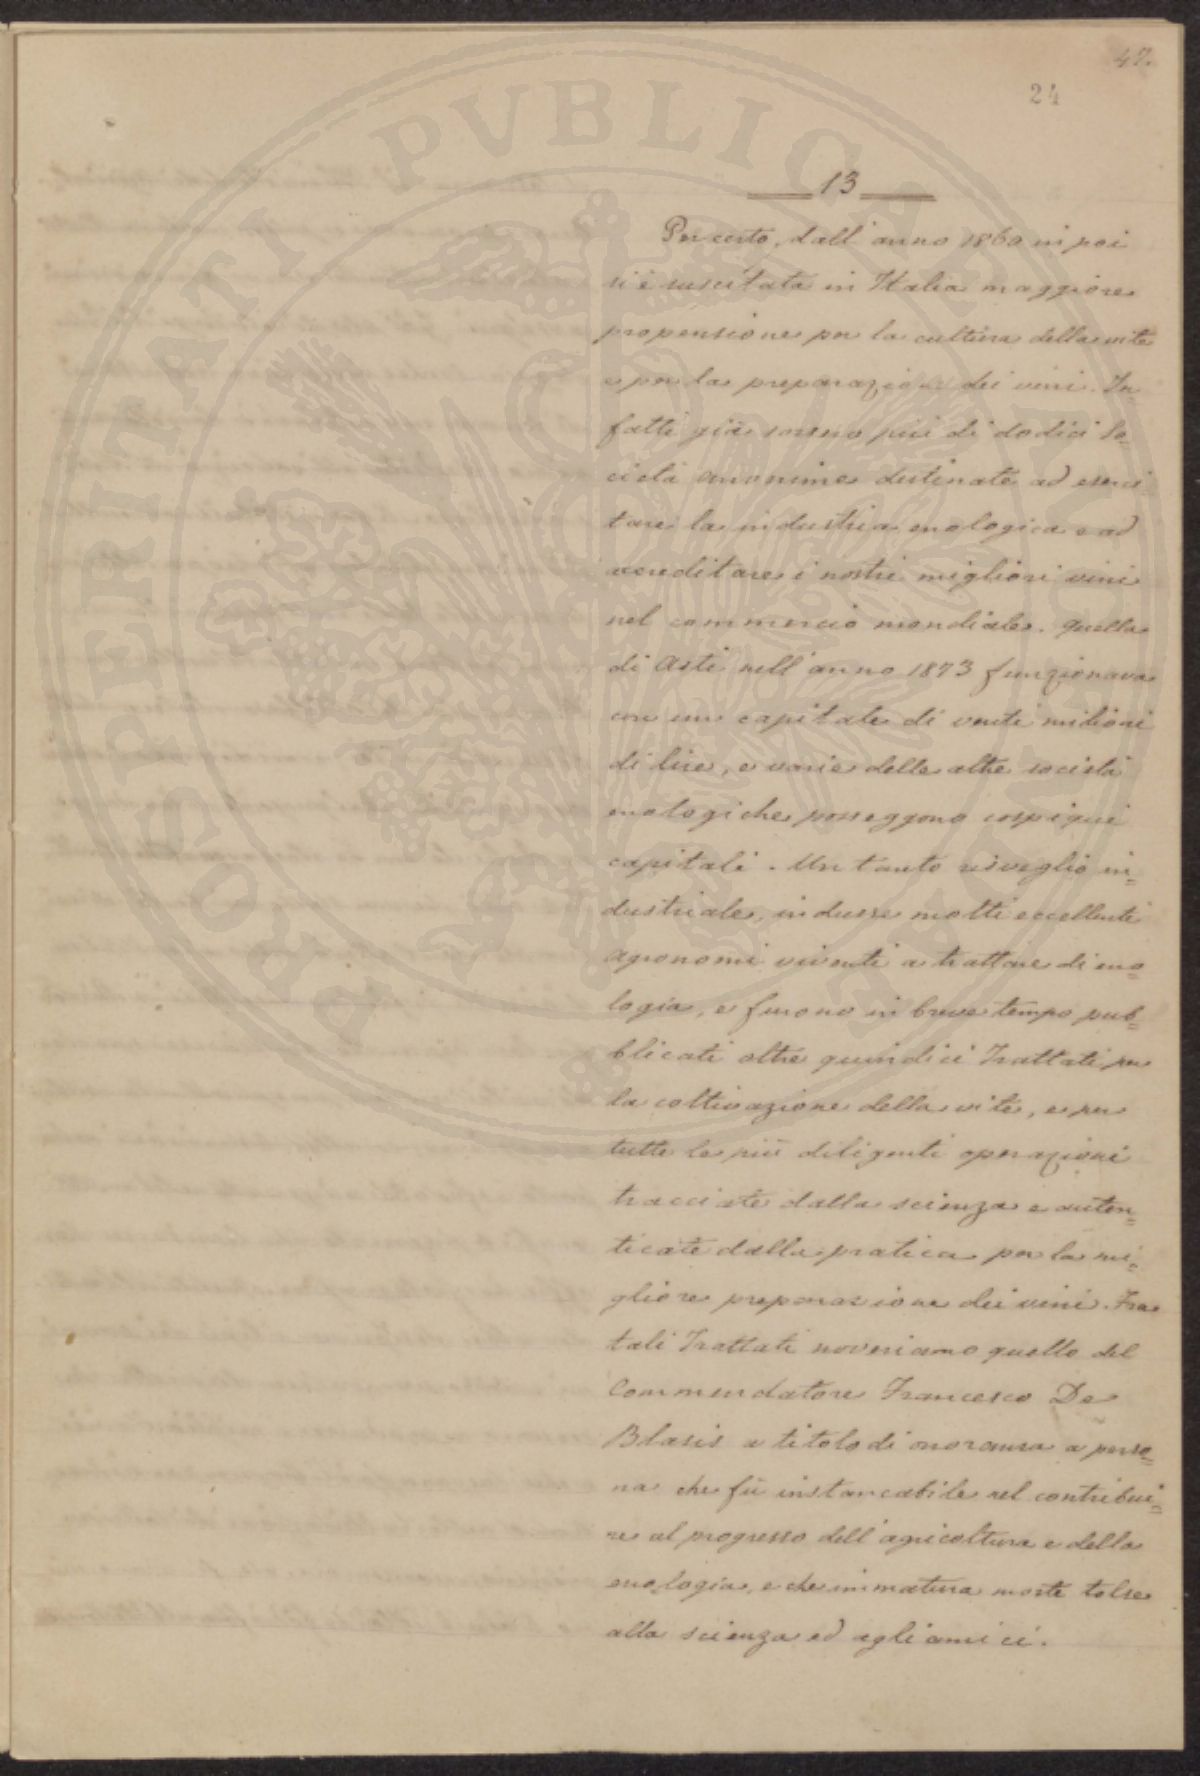 47.
24
13
Per certo, dall'anno 1860 in poi
si è suscitata in Italia maggiore
propensione per la cultura della vite
e per la preparazione dei vini. In
fatti già sorsero più di dodici So=
cietà anonime destinate ad eserci=
tare la industria enologica e ad
accreditare i nostri migliori vini
nel commercio mondiale. Quella
di Asti nell'anno 1873 funzionava
con un capitale di venti milioni
di lire, e varie delle altre società
enologiche posseggono cospiqui
capitali. Un tanto risveglio in=
dustriale, indusse molti eccellenti
agronomi viventi a trattare di eno=
logia, e furono in breve tempo pub=
blicati oltre quindici Trattati per
la coltivazione della vite, e per
tutte le più diligenti operazioni
tracciate dalla scienza e auten=
ticate dalla pratica per la mi=
gliore preparazione dei vini. Fra
tali Trattati noveriamo quello del
Commendatore Francesco De
Blasis a titolo di onoranza a perso=
na che fù instancabile nel contribui=
re al progresso dell'agricoltura e della
enologia, e che immatura morte tolse
alla scienza ed agli amici.
PROSPERITATI PVBLICAE AVGENDAE